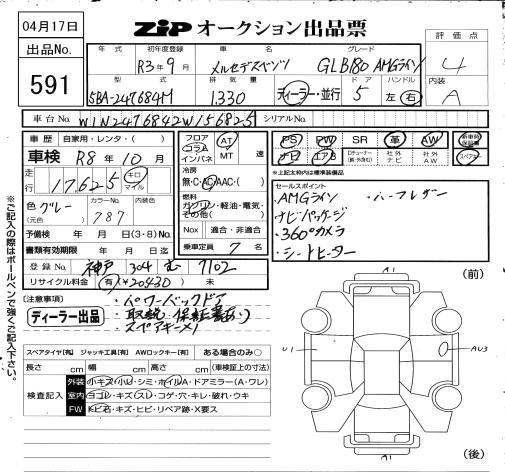 04月17日
ZIP オークション出品票
出品No.
591
年式 初年度登録 車名 グレード
R3年9月 メルセデスベンツ GLB180 AMGライン
型式 排気量 ドア ハンドル
5BA-247684M 1.330 ディーラー・並行 5 左・右
評価点
4
内装
A
車台No. W1N2476842W156825 シリアルNo.
車歴 自家用・レンタ・( )
車検 R8年10月
走行 17625 キロ マイル
色 グレー (元色) カラーNo. 787 内装色
予備検 年 月 日(3・8)No.
書類有効期限 年 月 日迄
登録No. 神戸 304 む 7102
リサイクル料金 (有)¥20430) 未
フロア コラム インパネ AT MT 速
冷房 無・C・AC・AAC・( )
燃料 ガソリン・軽油・電気・その他( )
Nox 適合・非適合
乗車定員 7 名
PS PW SR 革 AW 新車時保証書
ナビ エアB 社外ナビ 社外AW スペアキー
*上記太枠内は標準装備品
セールスポイント
AMGライン ・ハーフレザー
ナビパッケージ
・360°カメラ
・シートヒーター
(注意事項)
ディーラー出品
・パワーバックドア
・取説 保証書あり
・スペアキー×1
スペアタイヤ[有] ジャッキ工具[有] AWロックキー[有] ある場合のみ○
長さ cm 幅 cm 高さ cm (車検証上の寸法)
検査記入
外装 小キズ・小凹・シミ・ホイルA・ドアミラー(A・ワレ)
室内 ヨゴレ・キズ・スレ・コゲ・穴・キレ・破れ・ウキ
FW トビ石・キズ・ヒビ・リペア跡・X要ス
※ご記入の際はボールペンで強くご記入下さい。
(前)
A1
U1
AU3
A1
(後)